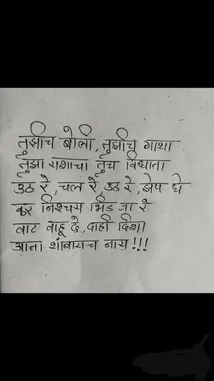 तुझीच बोली, तुझीच गाथा
तुझ्या यशाचा तुच विधाता
उठ रे, चल रे, उड रे, झेप घे
कर निश्चय भिड जा रे
वाट वाहू दे, दाही दिशा
आता थांबायच नाय!!!